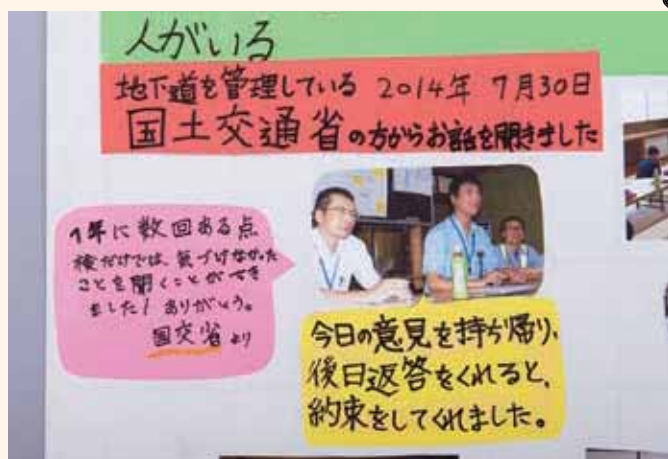 人がいる
地下道を管理している 2014年 7月30日
国土交通省の方からお話を聞きました
1年に数回ある点
検だけでは、気づけなかった
ことを聞くことができ
ました! ありがとう。
国交省より
今日の意見を持ち帰り、
後日返答をくれると、
約束をしてくれました。